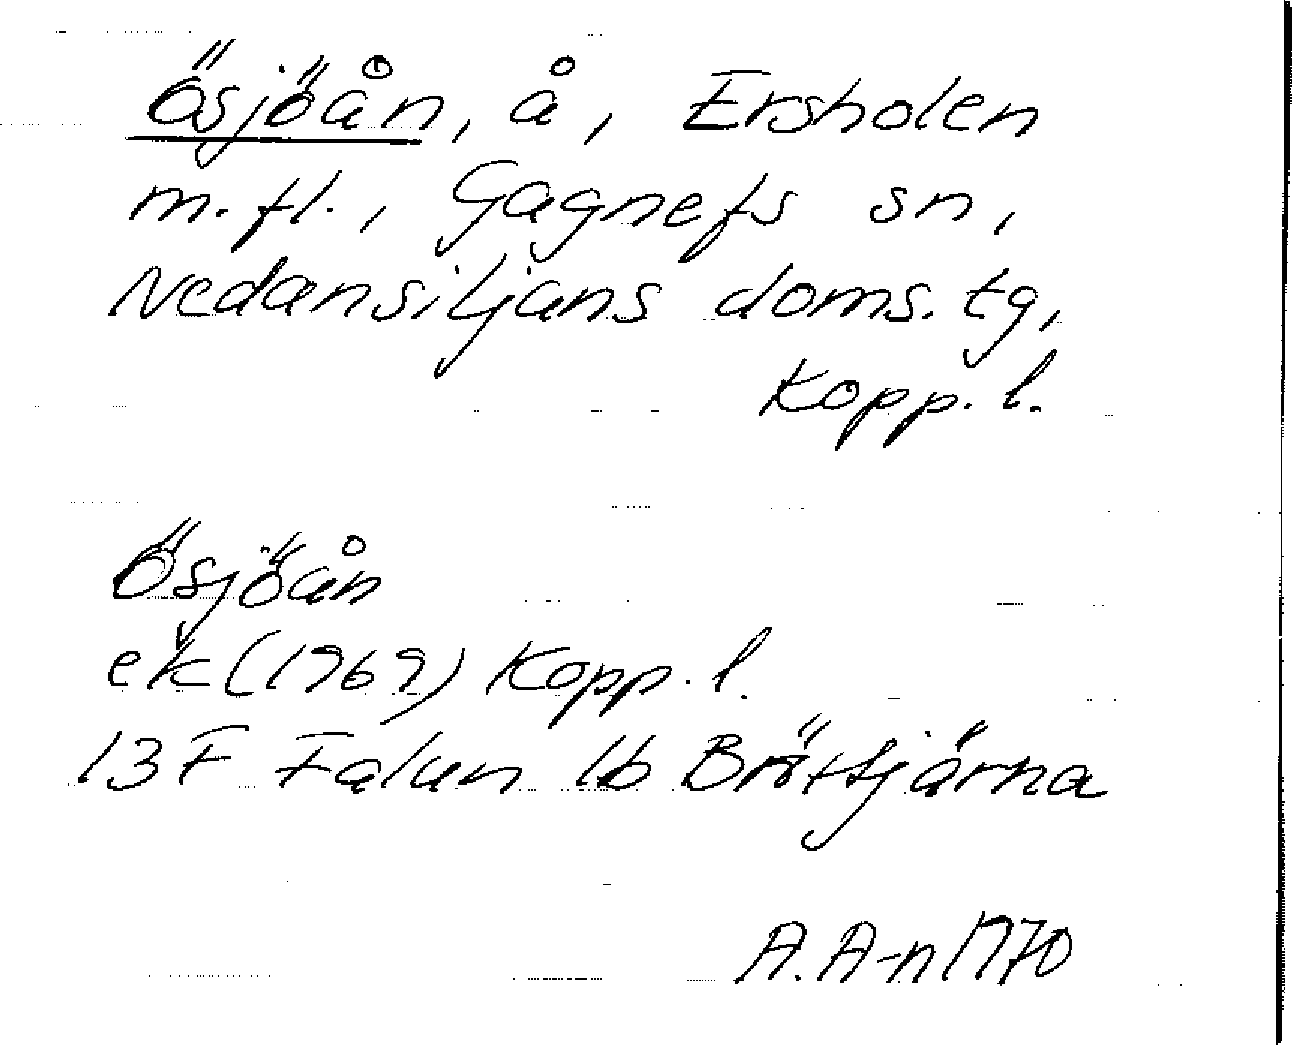 Ösjöån, å, Ersholen
m.fl., Gagnefs sn,
Nedansiljans doms. tg,
Kopp. l.
Ösjöån
ek (1969) Kopp. l.
13F Falun 1b Bröttjärna
A. A-n 1970